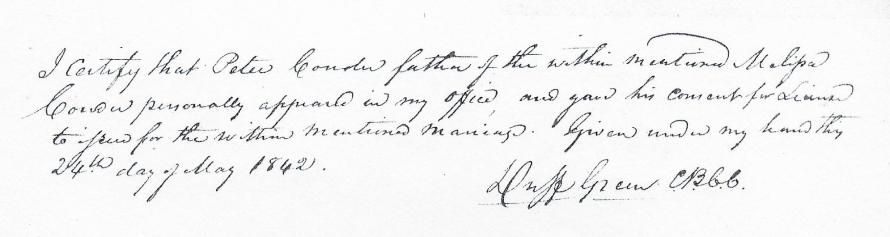 I certify that Peter Couder father of the within mentioned Melissa
Couder personally appeared in my office, and gave his consent for License
to issue for the within mentioned marriage. Given under my hand this
24th day of May 1842.
Duff Green C.B.C.C.